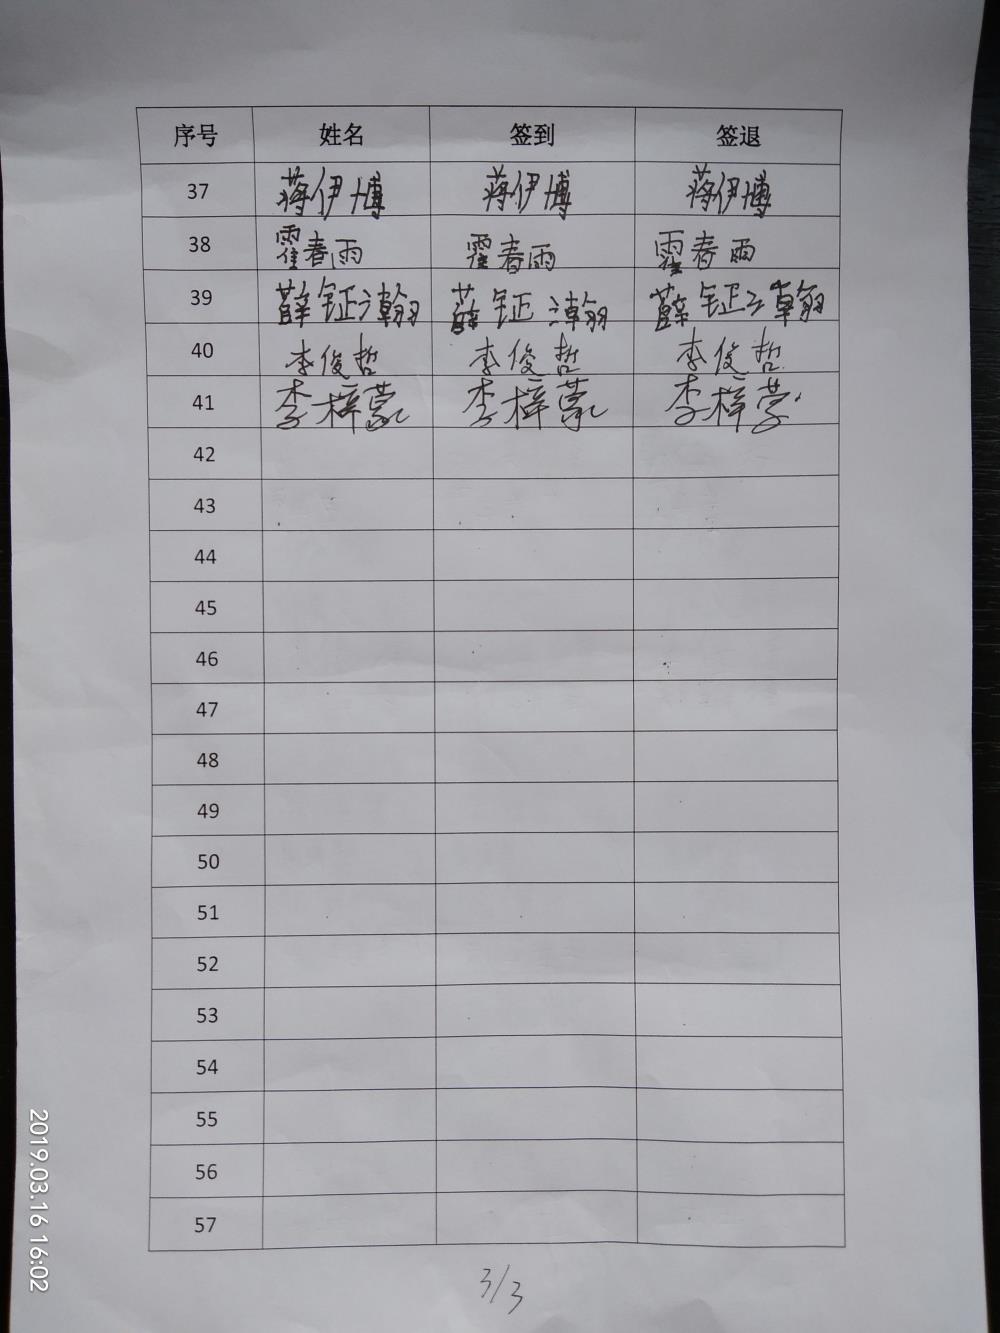 序号 姓名 签到 签退
37 蒋伊博 蒋伊博 蒋伊博
38 霍春雨 霍春雨 霍春雨
39 薛钲瀚 薛钲瀚 薛钲瀚
40 李俊哲 李俊哲 李俊哲
41 李梓蒙 李梓蒙 李梓蒙
42
43
44
45
46
47
48
49
50
51
52
53
54
55
56
57
3/3
2019.03.16 16:02